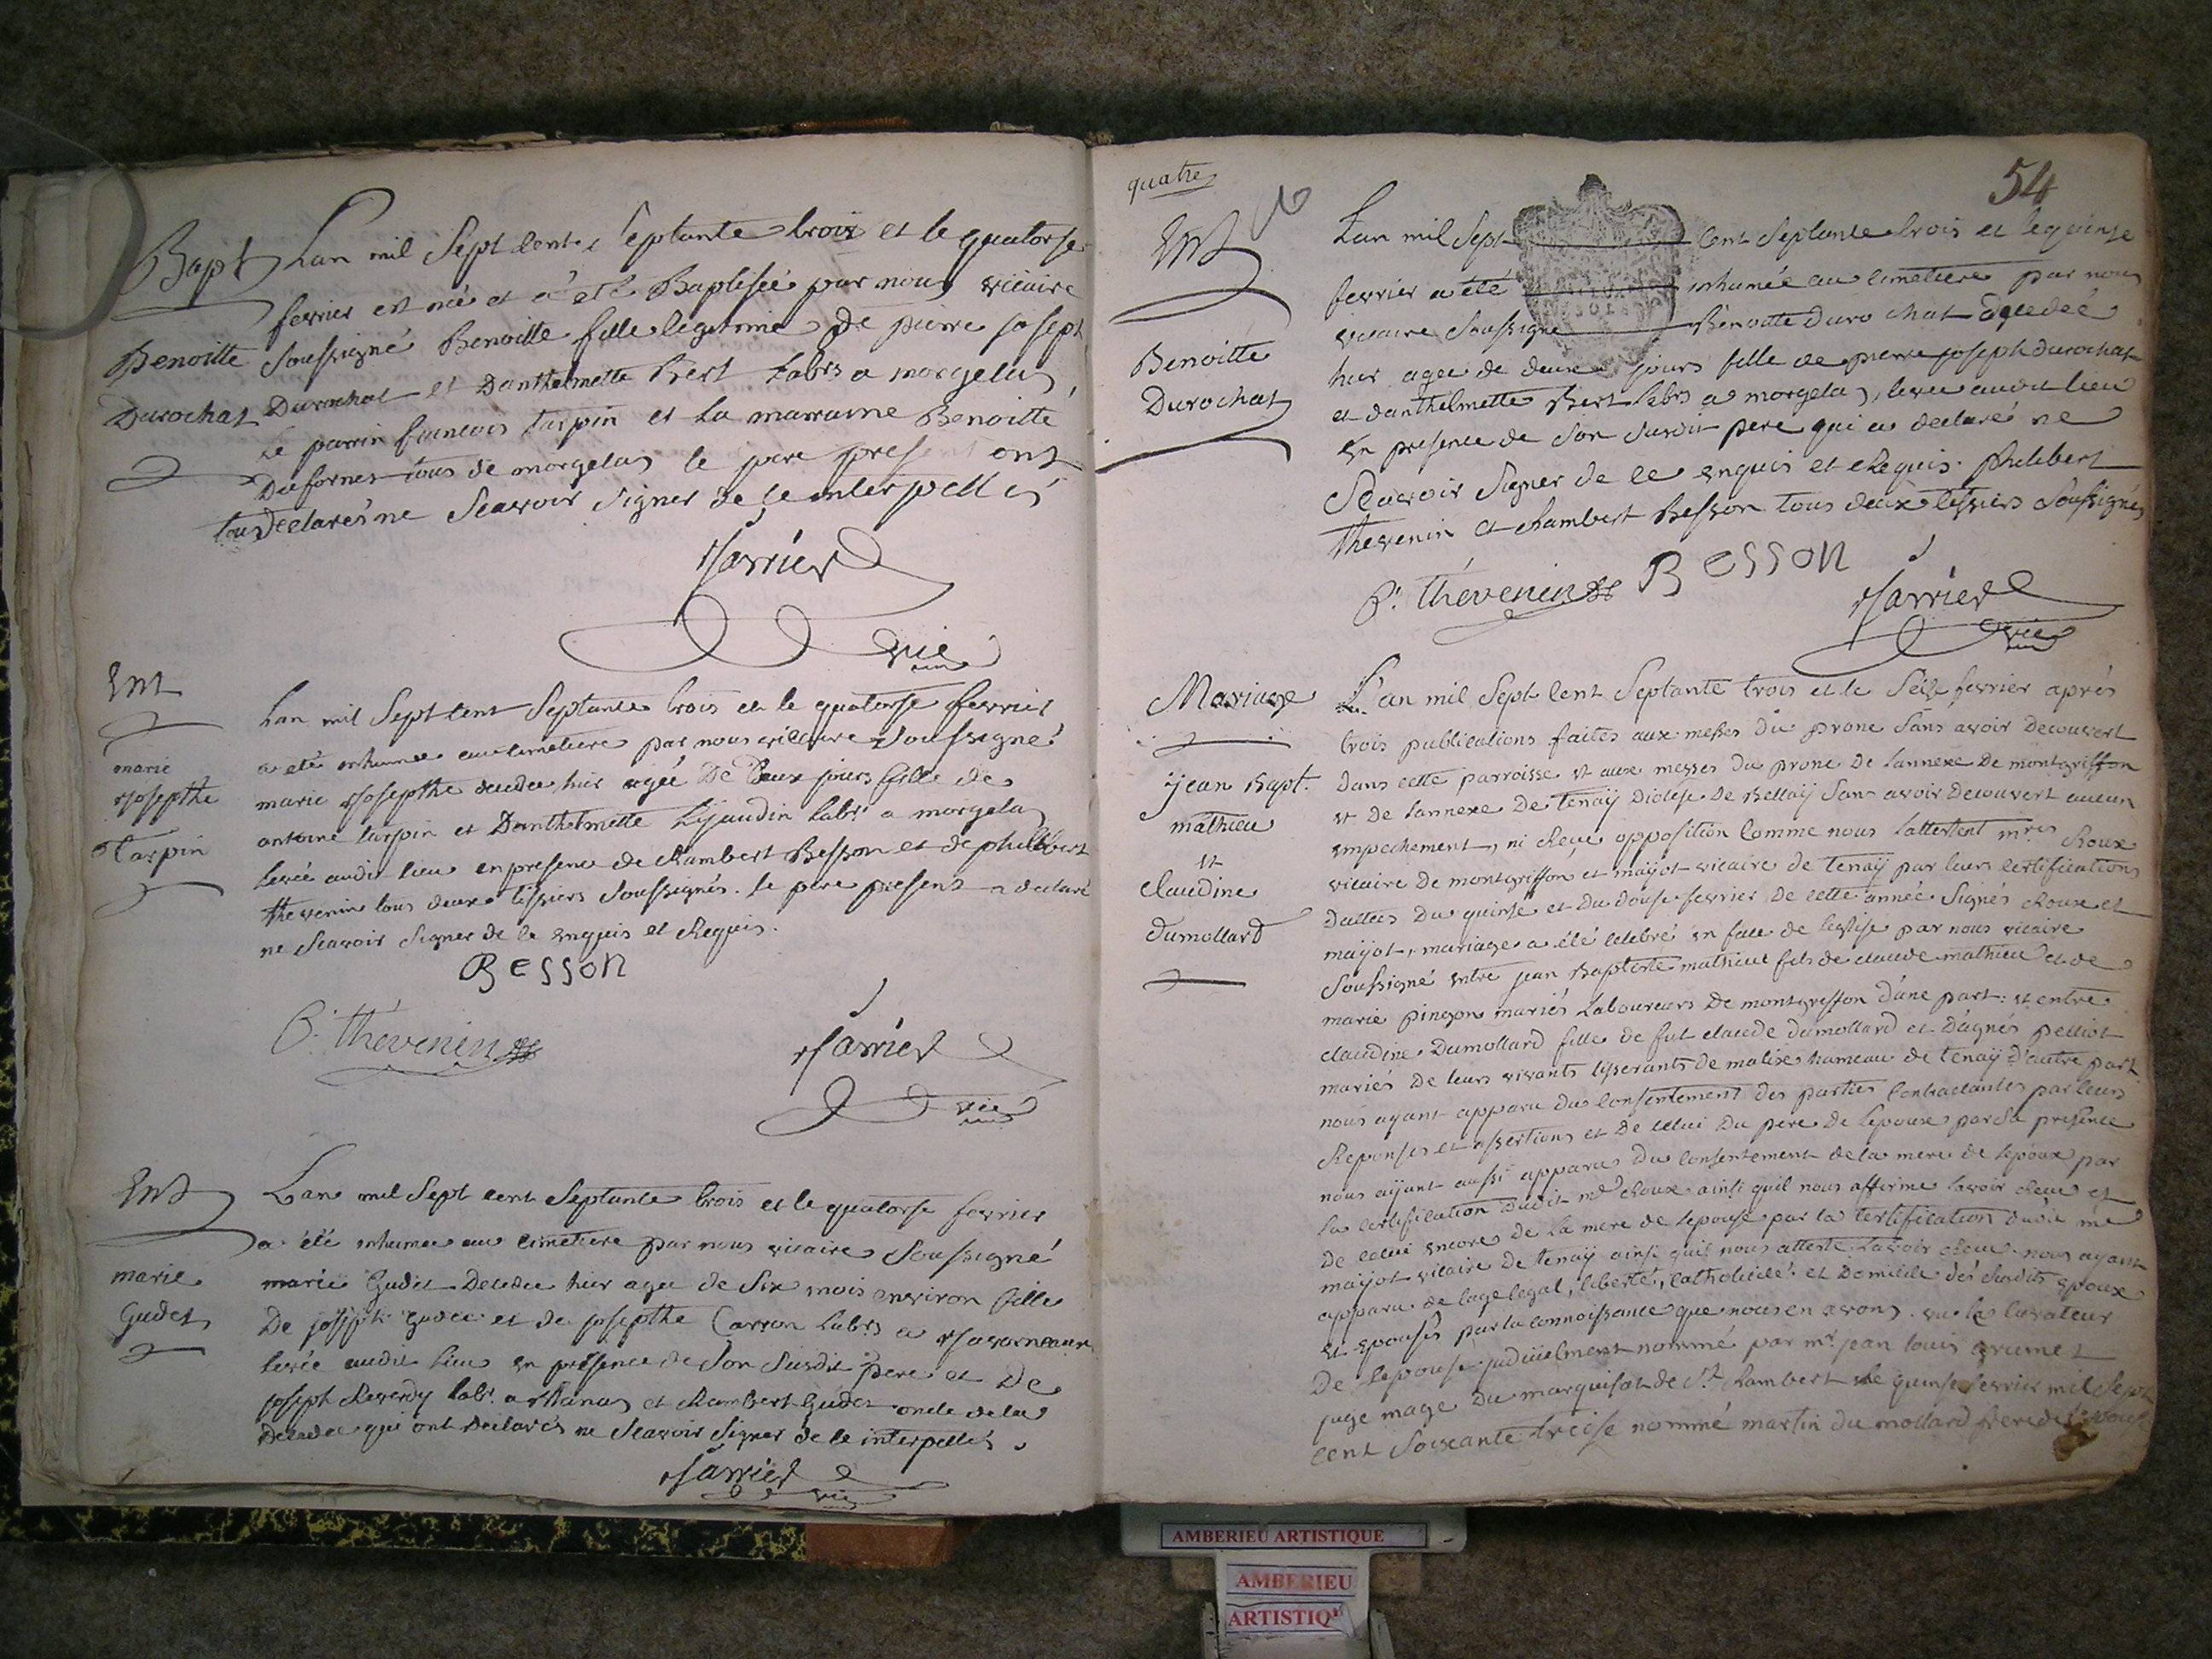 Bapt
Benoitte
Durochat
Lan mil Sept cent Septante trois et le quatorse
fevrier est née et a été Baptisée par nous vicaire
Soussigné Benoitte fille legitime de pierre joseph
Durochat et Danthelmette Bert labrs a morgelas,
Le parrin francois tarpin et La marraine Benoitte
Dufornet tous de morgelas le pere present ont
tous declarés ne Scavoir Signer de ce interpellés
Jarrier
vic
Ent
marie
Josepthe
Tarpin
Lan mil Sept cent Septante trois et le quatorse fevrier
a été inhumée au cimetiere par nous vicaire Soussigné
marie Josepthe decedee hier agée De Deux jours fille de
antoine tarpin et Danthelmette Lijaudin labr a morgelas
levée audit lieu en presence de Rambert Besson et de philibert
thevenin tous deux tissiers Soussignés. le pere present a declaré
ne Scavoir Signer de ce enquis et Requis.
Besson
P. thévenin
Jarrier
vic
Ent
marie
Gudet
Lan mil Sept cent Septante trois et le quatorse fevrier
a été inhumee au cimetiere par nous vicaire Soussigné
marie Gudet Decedee hier agee de Six mois environ fille
De joseph Gudet et de josepthe Carron labrs a Javornieux
levée audit lieu en présence de Son Susdit pere et De
joseph Reverdy labr a et Rambert Gudet oncle de la
decedee qui ont declarés ne Scavoir Signer de ce interpellés.
Jarrier
vic
quatre
54
Ent
Benoitte
Durochat
Lan mil Sept cent Septante trois et le quinse
fevrier a été inhumée au cimetiere par nous
vicaire Soussigné Benoitte Durochat decedeé
hier agee de deux jours fille de pierre joseph durochat
et danthelmette Bert labrs a morgelas, levee audit lieu
en presence de Son Susdit pere qui a declaré ne
Scavoir Signer de ce enquis et Requis. philibert
thevenin et Rambert Besson tous deux tissiers Soussignés
P. thévenin Besson
Jarrier
vic
Mariage
jean Bapt.
mathieu
et
claudine
dumollard
L'an mil Sept cent Septante trois et le Seize fevrier aprés
trois publications faites aux messes du prone Sans avoir Decouvert
Dans cette parroisse et aux messes du prone De lannexe De montgriffon
et de lannexe De tenaÿ Diocese De Bellaÿ Sans avoir Decouvert aucun
empechement, ni Reçue opposition Comme nous lattestent mrs Roux
vicaire de montgriffon et maÿot vicaire de tenaÿ par leurs certifications
Dattées Du quinse et Du douse fevrier De cette année Signés Roux et
maÿot, mariage a été celebré en face de leglise par nous vicaire
Soussigné entre jean Baptiste mathieu fils de claude mathieu et de
marie pingon mariés Laboureurs De montgriffon d'une part: et entre
claudine Dumollard fille de fut claude dumollard et D'agnés pelliot
mariés De leurs vivants tisserants de malix hameau de tenaÿ D'autre part
nous ayant apparu du consentement des parties contractantes par leurs
Reponses et assertions et De celui Du pere De lepoux par Sa presence
nous aÿant aussi apparu Du consentement de la mere de lepoux par
la certification dudit mr Roux ainsi quil nous affirme lavoir Reçue et
De celui encore de la mere de lepouse par la certification dudit mr
maÿot vicaire de tenaÿ ainsi quil nous atteste lavoir Reçue nous ayant
apparu de lage legal, liberté, catholicité et Domicile des Susdits epoux
et epouse par la connoissance que nous en avons. vu le Curateur
De lepouse judiciellment nommé par mr jean louis grumet
juge mage Du marquisat de St Rambert le quinse fevrier mil Sept
cent Soixante treise nommé martin du mollard frere de lepouse
AMBERIEU ARTISTIQUE
AMBERIEU
ARTISTIQ